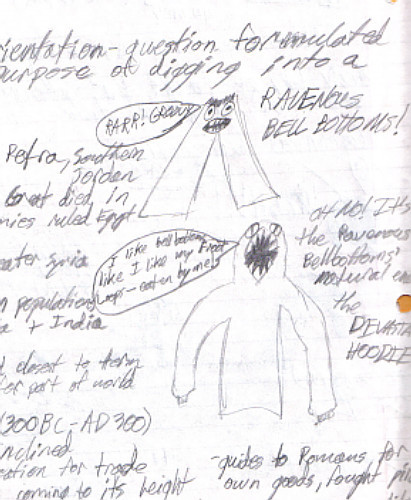 rientation - question formulated
purpose of digging into a
RAVENOUS
BELL BOTTOMS!
RARR! GROOVY
Petra, Southern
Jordan
Great died in
mies ruled Egypt
OH NO! It's
the Ravenous
Bellbottoms'
natural en
the
DEVASTA
HOODIE
I like bellbottoms
like I like my Froot
Loops - eaten by me!
eater Syria
n population
a + India
d closest to
ter part of world
(300BC-AD300)
nclined
cation for trade
coming to its height
-guides to Romans, for
own goods, fought pi